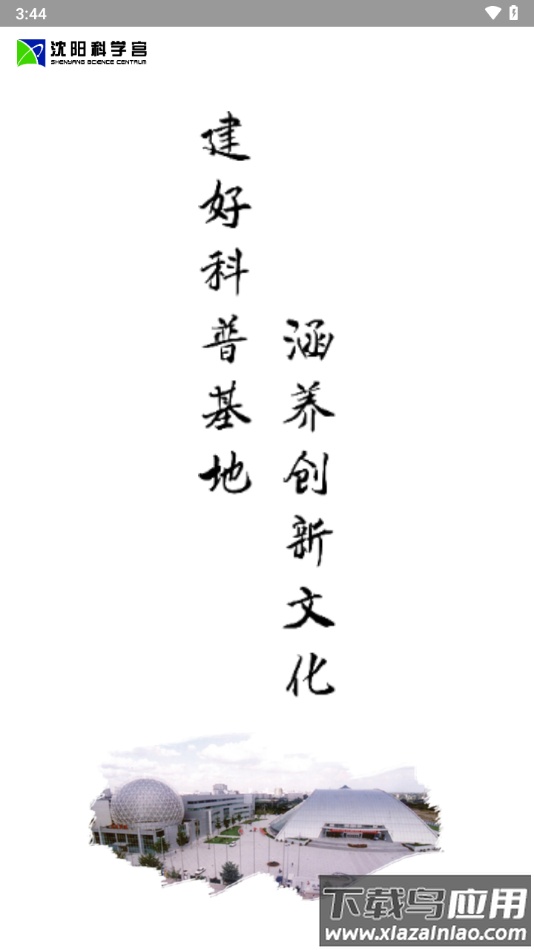 3:44
沈阳科学宫
SHENYANG SCIENCE CENTRUM
建好科普基地
涵养创新文化
下载鸟应用
www.xiazainiao.com